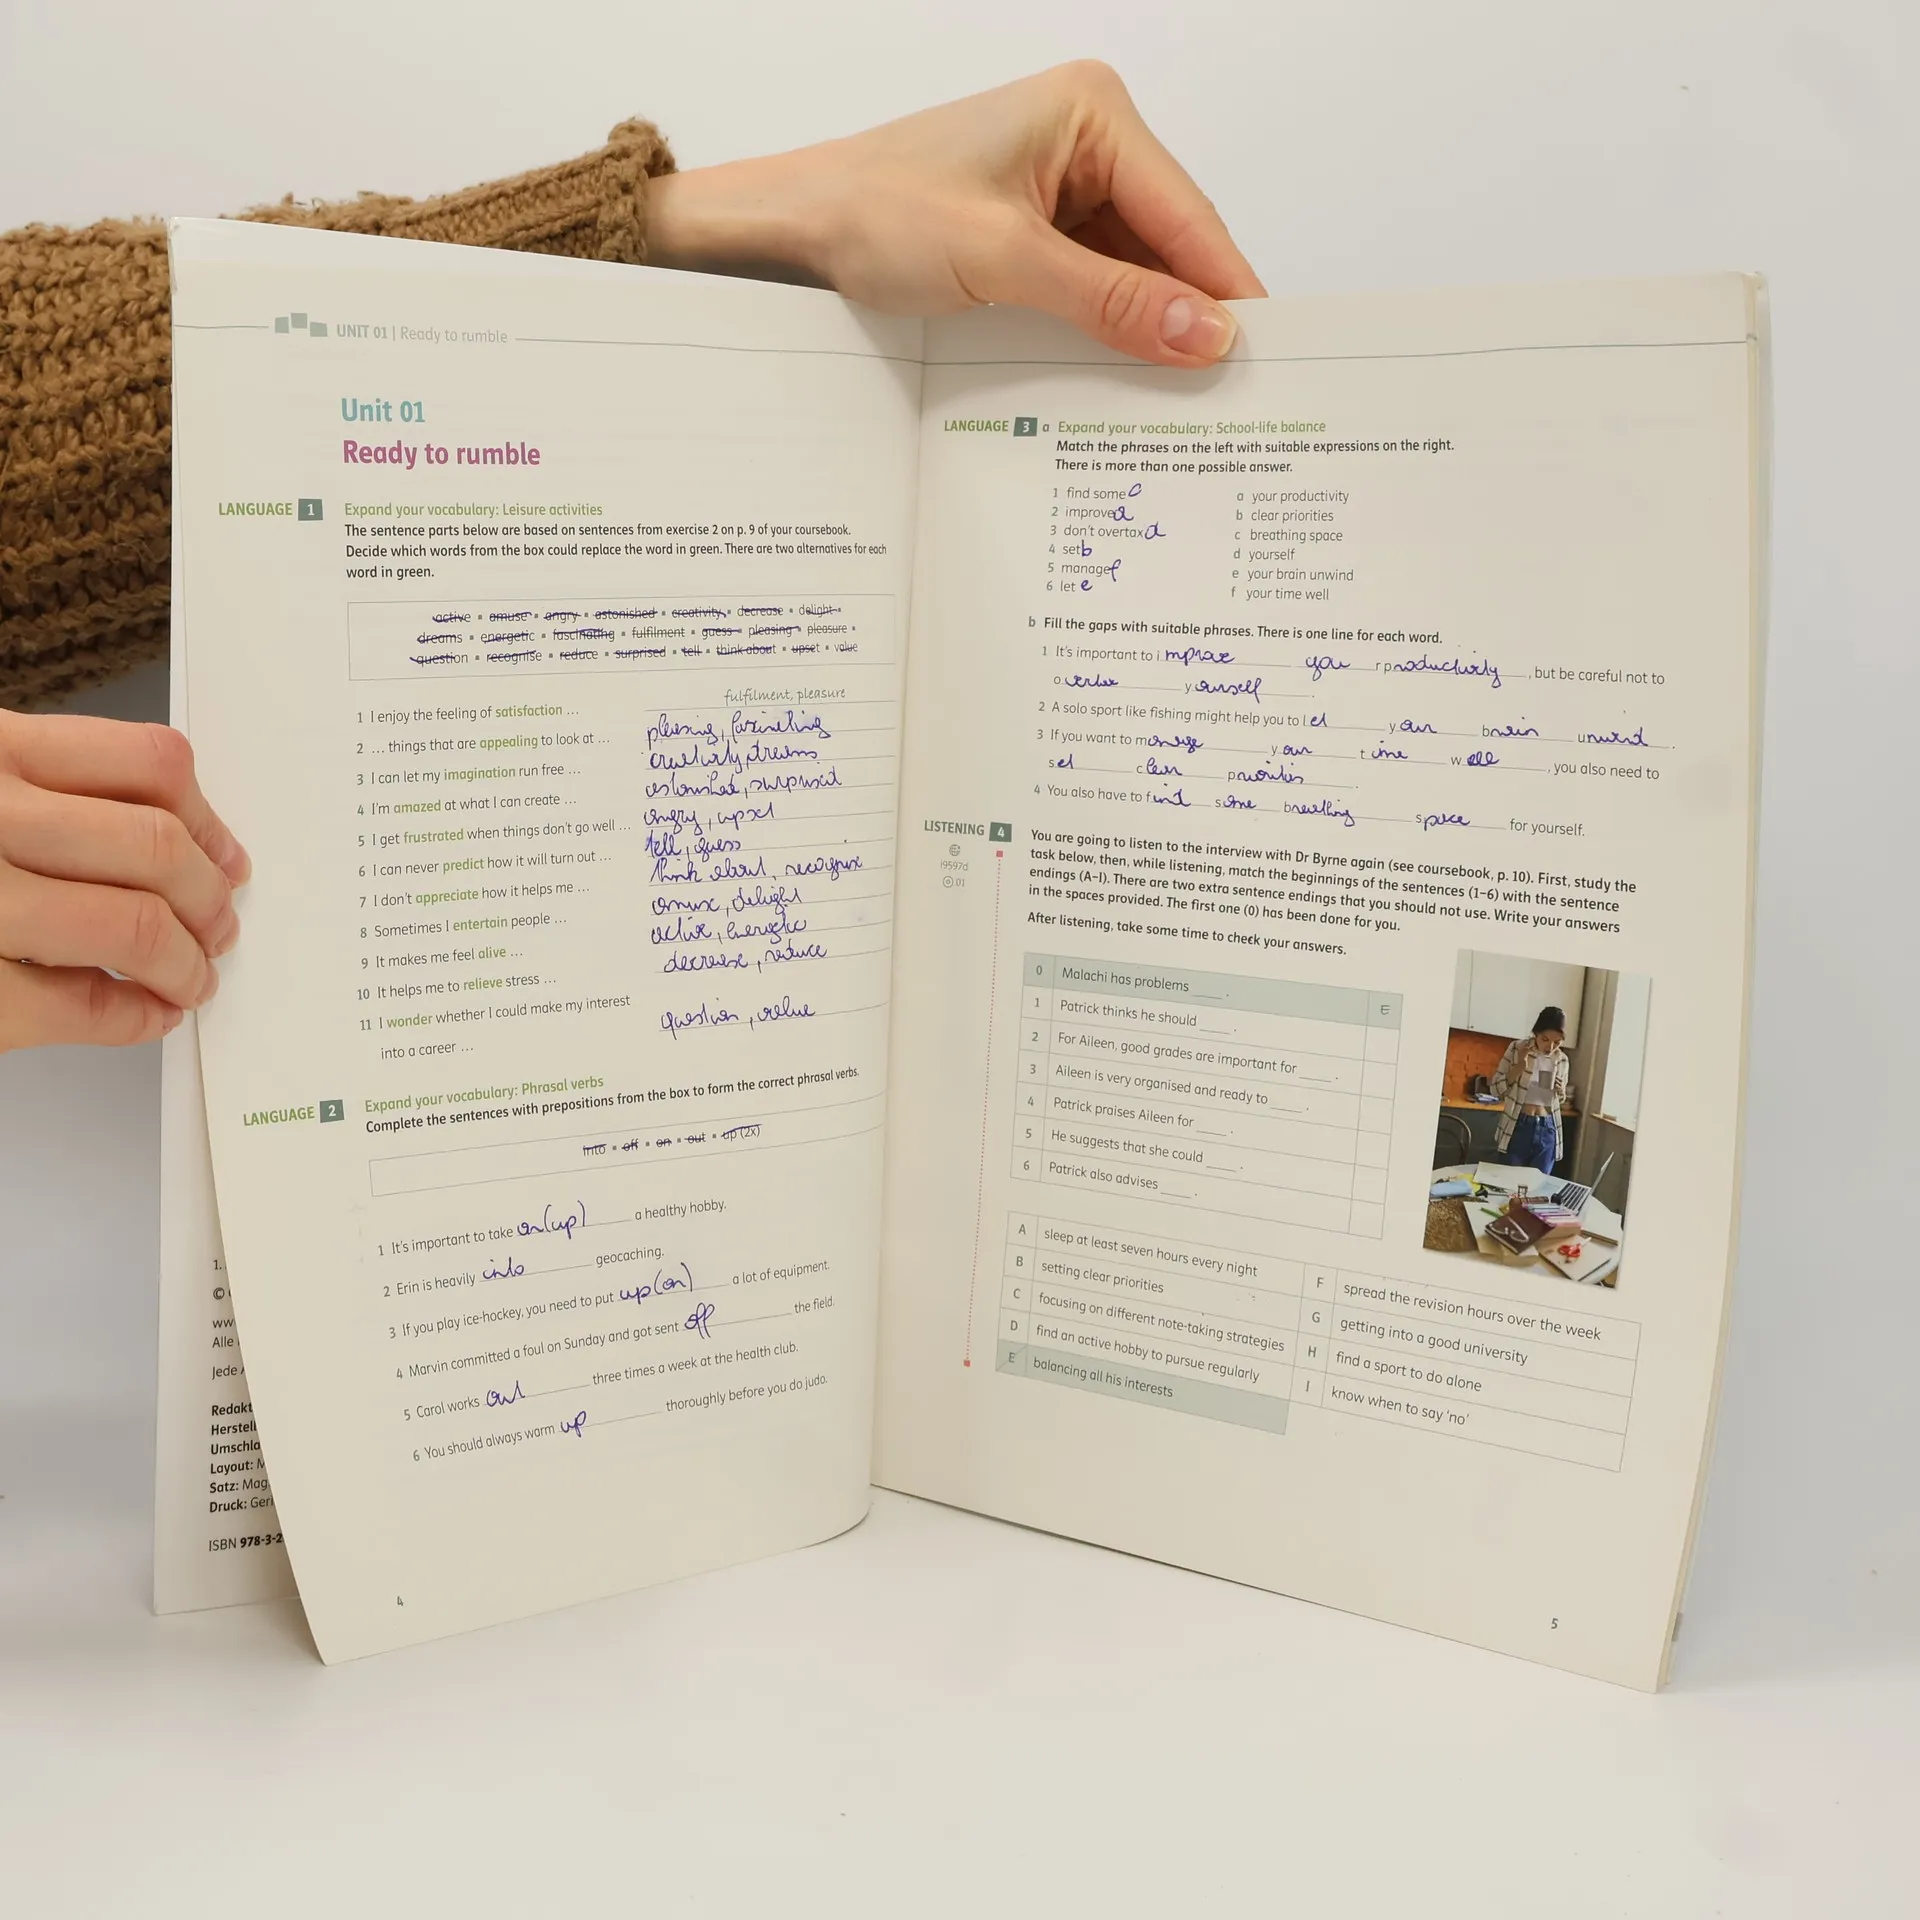 UNIT 01 | Ready to rumble
Unit 01
Ready to rumble
LANGUAGE 1 Expand your vocabulary: Leisure activities
The sentence parts below are based on sentences from exercise 2 on p. 9 of your coursebook.
Decide which words from the box could replace the word in green. There are two alternatives for each
word in green.
active ▪ amuse ▪ angry ▪ astonished ▪ creativity ▪ decrease ▪ delight ▪
dreams ▪ energetic ▪ fascinating ▪ fulfilment ▪ guess ▪ pleasing ▪ pleasure ▪
question ▪ recognise ▪ reduce ▪ surprised ▪ tell ▪ think about ▪ upset ▪ value
1 I enjoy the feeling of satisfaction ... fulfilment, pleasure
2 ... things that are appealing to look at ... pleasing, fascinating
3 I can let my imagination run free ... creativity, dreams
4 I'm amazed at what I can create ... astonished, surprised
5 I get frustrated when things don't go well ... angry, upset
6 I can never predict how it will turn out ... tell, guess
7 I don't appreciate how it helps me ... think about, recognise
8 Sometimes I entertain people ... amuse, delight
9 It makes me feel alive ... active, energetic
10 It helps me to relieve stress ... decrease, reduce
11 I wonder whether I could make my interest
into a career ... question, value
LANGUAGE 2 Expand your vocabulary: Phrasal verbs
Complete the sentences with prepositions from the box to form the correct phrasal verbs.
into ▪ off ▪ on ▪ out ▪ up (2x)
1 It's important to take on(up) a healthy hobby.
2 Erin is heavily into geocaching.
3 If you play ice-hockey, you need to put up(on) a lot of equipment.
4 Marvin committed a foul on Sunday and got sent off the field.
5 Carol works out three times a week at the health club.
6 You should always warm up thoroughly before you do judo.
4
1.
©
ww
Alle
Jede
Redakt
Herstell
Umschla
Layout: M
Satz: Mag
Druck: Gerl
ISBN 978-3-2
LANGUAGE 3 a Expand your vocabulary: School-life balance
Match the phrases on the left with suitable expressions on the right.
There is more than one possible answer.
1 find some c a your productivity
2 improve a b clear priorities
3 don't overtax d c breathing space
4 set b d yourself
5 manage f e your brain unwind
6 let e f your time well
b Fill the gaps with suitable phrases. There is one line for each word.
1 It's important to improve your productivity, but be careful not to
overtax yourself.
2 A solo sport like fishing might help you to let your brain unwind.
3 If you want to manage your time well, you also need to
set clear priorities.
4 You also have to find some breathing space for yourself.
LISTENING 4 You are going to listen to the interview with Dr Byrne again (see coursebook, p. 10). First, study the
task below, then, while listening, match the beginnings of the sentences (1–6) with the sentence
endings (A–I). There are two extra sentence endings that you should not use. Write your answers
in the spaces provided. The first one (0) has been done for you.
i9597d
01
After listening, take some time to check your answers.
0 Malachi has problems ____. E
1 Patrick thinks he should ____.
2 For Aileen, good grades are important for ____.
3 Aileen is very organised and ready to ____.
4 Patrick praises Aileen for ____.
5 He suggests that she could ____.
6 Patrick also advises ____.
A sleep at least seven hours every night
B setting clear priorities
C focusing on different note-taking strategies
D find an active hobby to pursue regularly
E balancing all his interests
F spread the revision hours over the week
G getting into a good university
H find a sport to do alone
I know when to say 'no'
5